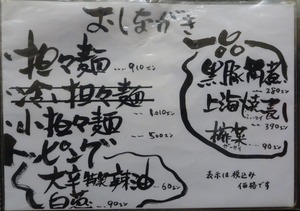 おしながき
担々麺 910エン
冷し担々麺 1010エン
小担々麺 500エン
トッピング
大辛特製辣油 60エン
白葱 90エン
一品
黒豚角煮 280エン
上海焼売 390エン
搾菜 90エン
表示は税込み
価格です